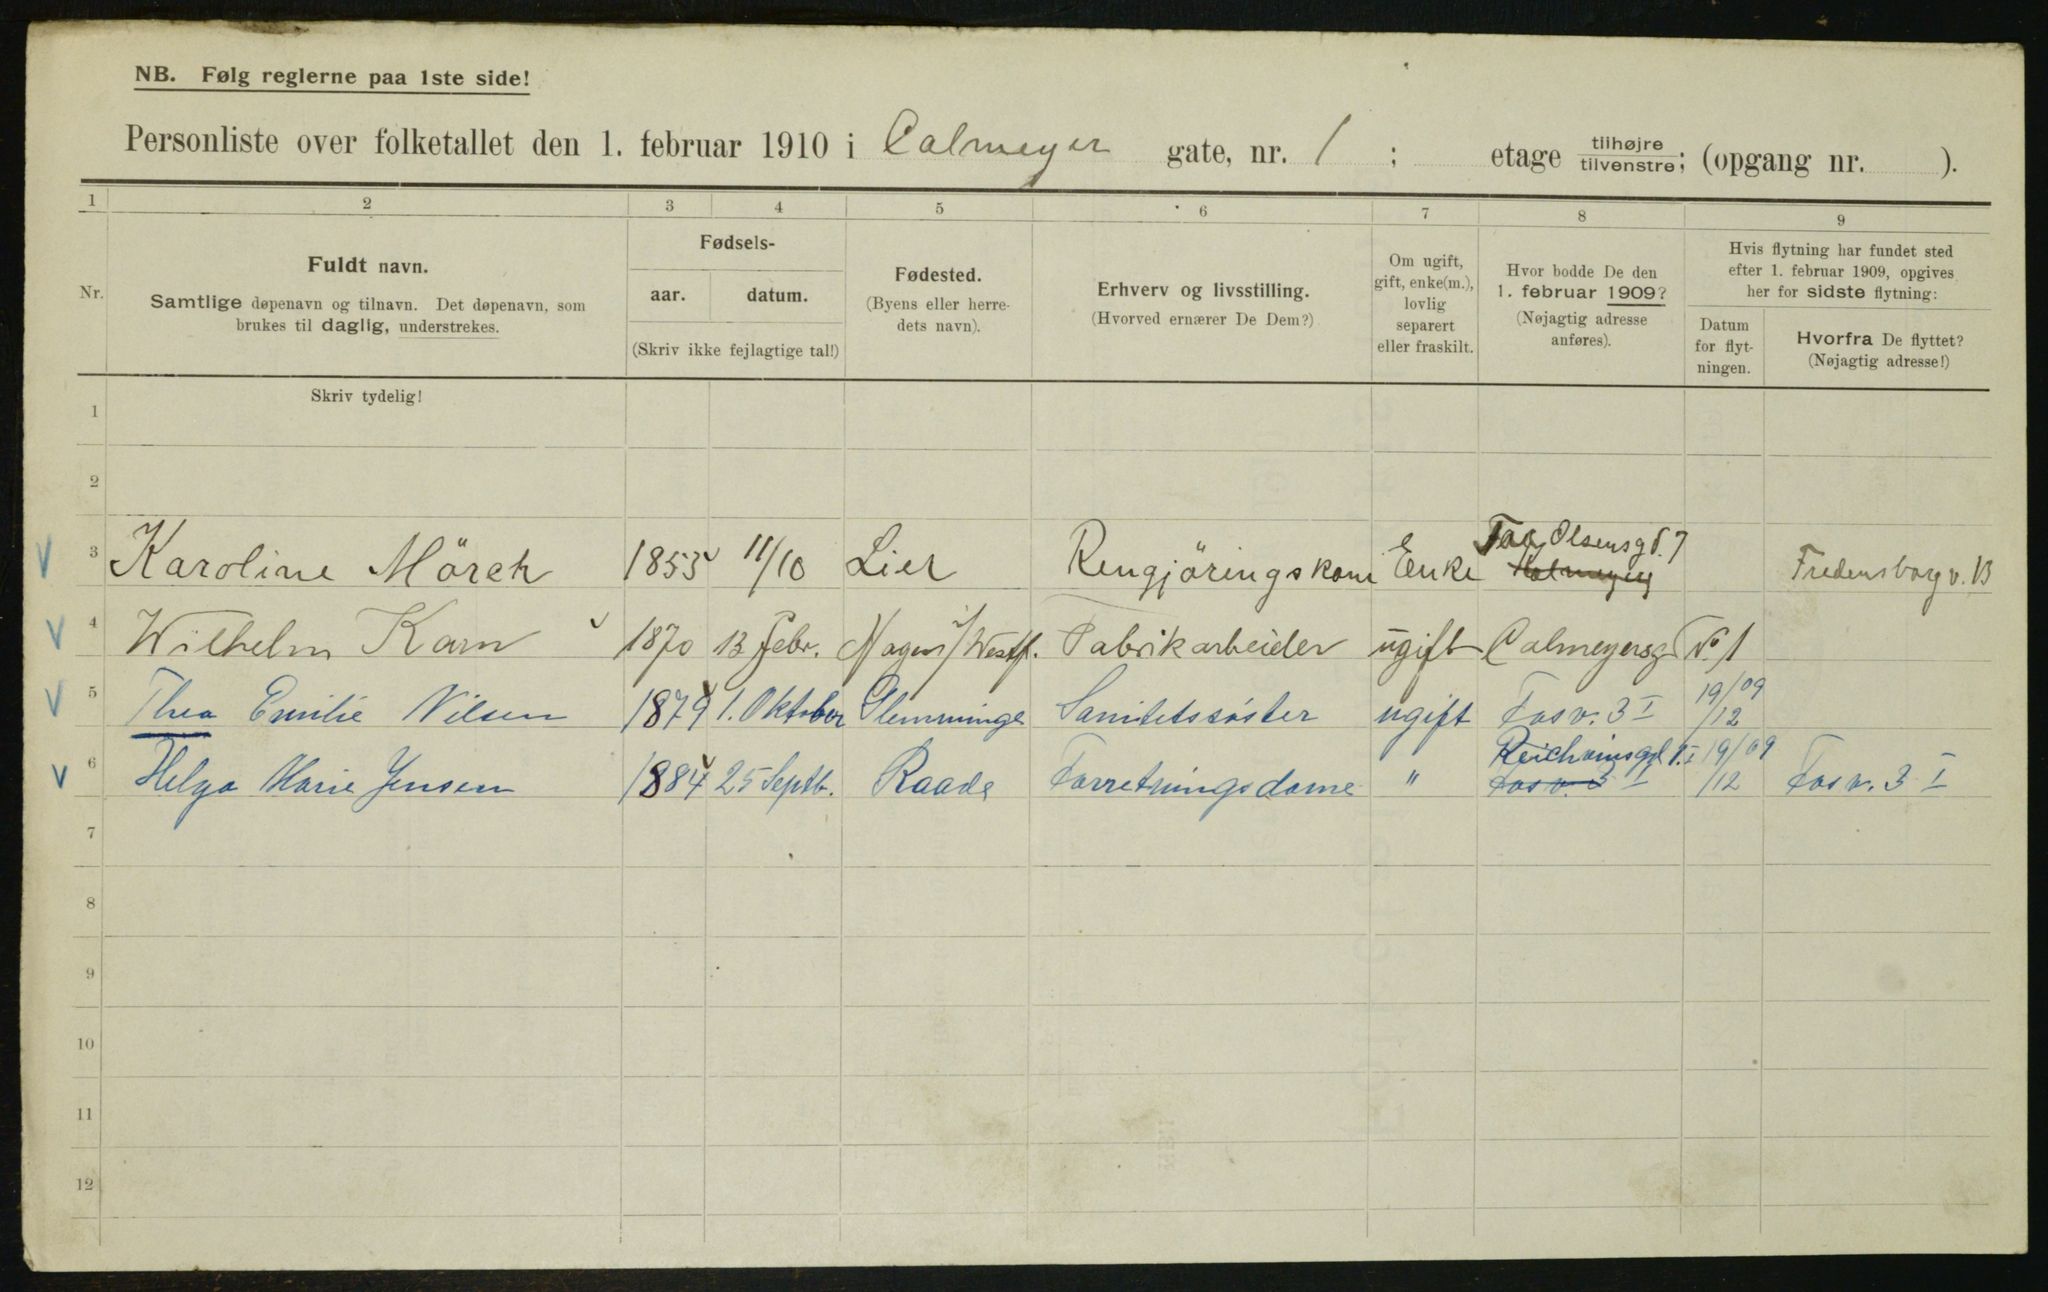 NB. Følg reglerne paa 1ste side!
Personliste over folketallet den 1. februar 1910 i Calmeyer gate, nr. 1 ; etage tilhøjre tilvenstre; (opgang nr. ).
1 2 3 4 5 6 7 8 9
Nr.
Fuldt navn.
Samtlige døpenavn og tilnavn. Det døpenavn, som
brukes til daglig, understrekes.
Fødsels-
aar. datum.
(Skriv ikke fejlagtige tal!)
Fødested.
(Byens eller herre-
dets navn).
Erhverv og livsstilling.
(Hvorved ernærer De Dem?)
Om ugift,
gift, enke(m.),
lovlig
separert
eller fraskilt.
Hvor bodde De den
1. februar 1909?
(Nøjagtig adresse
anføres).
Hvis flytning har fundet sted
efter 1. februar 1909, opgives
her for sidste flytning:
Datum
for flyt-
ningen.
Hvorfra De flyttet?
(Nøjagtig adresse!)
Skriv tydelig!
1
2
3 Karoline Mörch 1855 11/10 Lier Rengjöringskone Enke E Olsensgd. 7 Fredensborgv. 13
4 Wilhelm Karn 1870 13 Febr. Hagen i/Westf. Fabrikarbeider ugift Calmeyersgd No. 1
5 Thea Emilie Nilsen 1879 1. Oktober Glemminge Sanitetssøster ugift Fosv. 3 I 19/12 09
6 Helga Marie Jensen 1884 25 Septb. Raade Forretningsdame " Fosv. 3 I 19/12 09 Fosv. 3 I
7
8
9
10
11
12